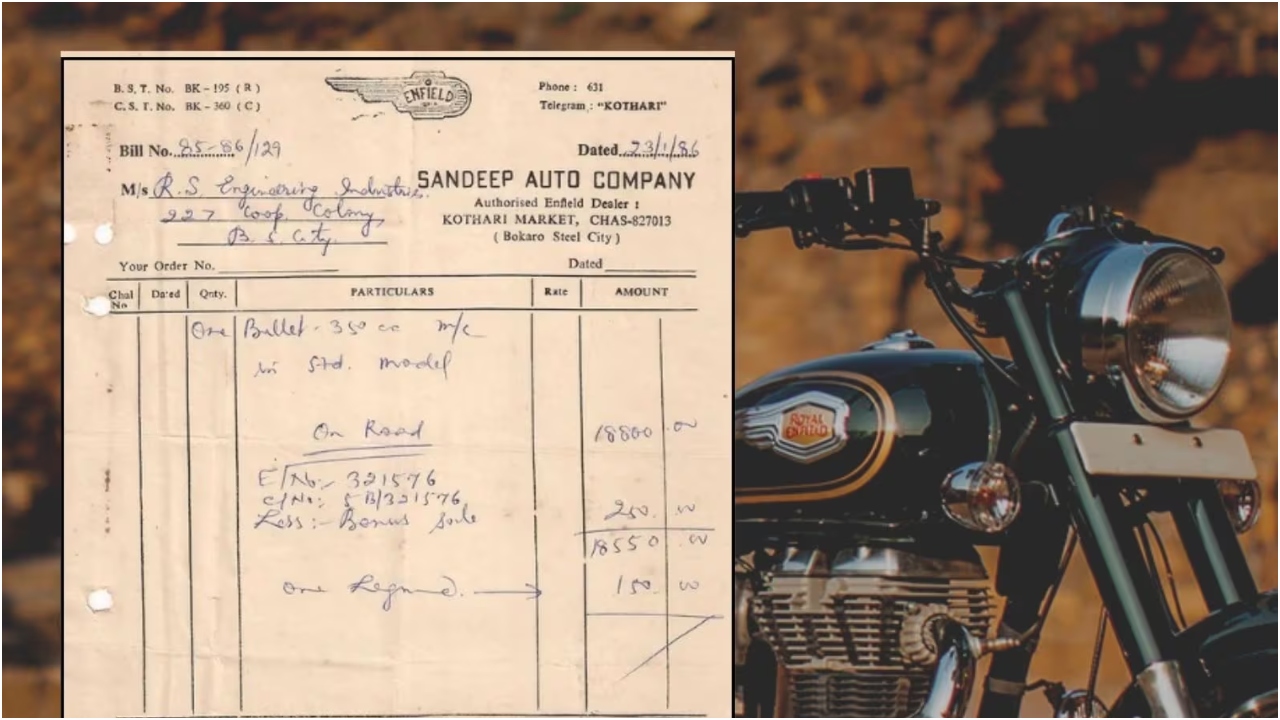 B. S. T. No. BK - 195 ( R )
C. S. T. No. BK - 360 ( C )
ENFIELD
Phone : 631
Telegram : "KOTHARI"
Bill No. 85-86/129
Dated 23/1/86
M/s R.S. Engineering Industries
227 Coop. Colony
B. S. City
SANDEEP AUTO COMPANY
Authorised Enfield Dealer :
KOTHARI MARKET, CHAS-827013
( Bokaro Steel City )
Your Order No.
Dated
Chal No
Dated
Qnty.
PARTICULARS
Rate
AMOUNT
One Bullet - 350 cc m/c
in Std. model
On Road 18800.00
E/No:- 321576
C/No:- 5B/321576
Less:- Bonus 250.00
18550.00
One Legguard. → 150.00
ROYAL ENFIELD